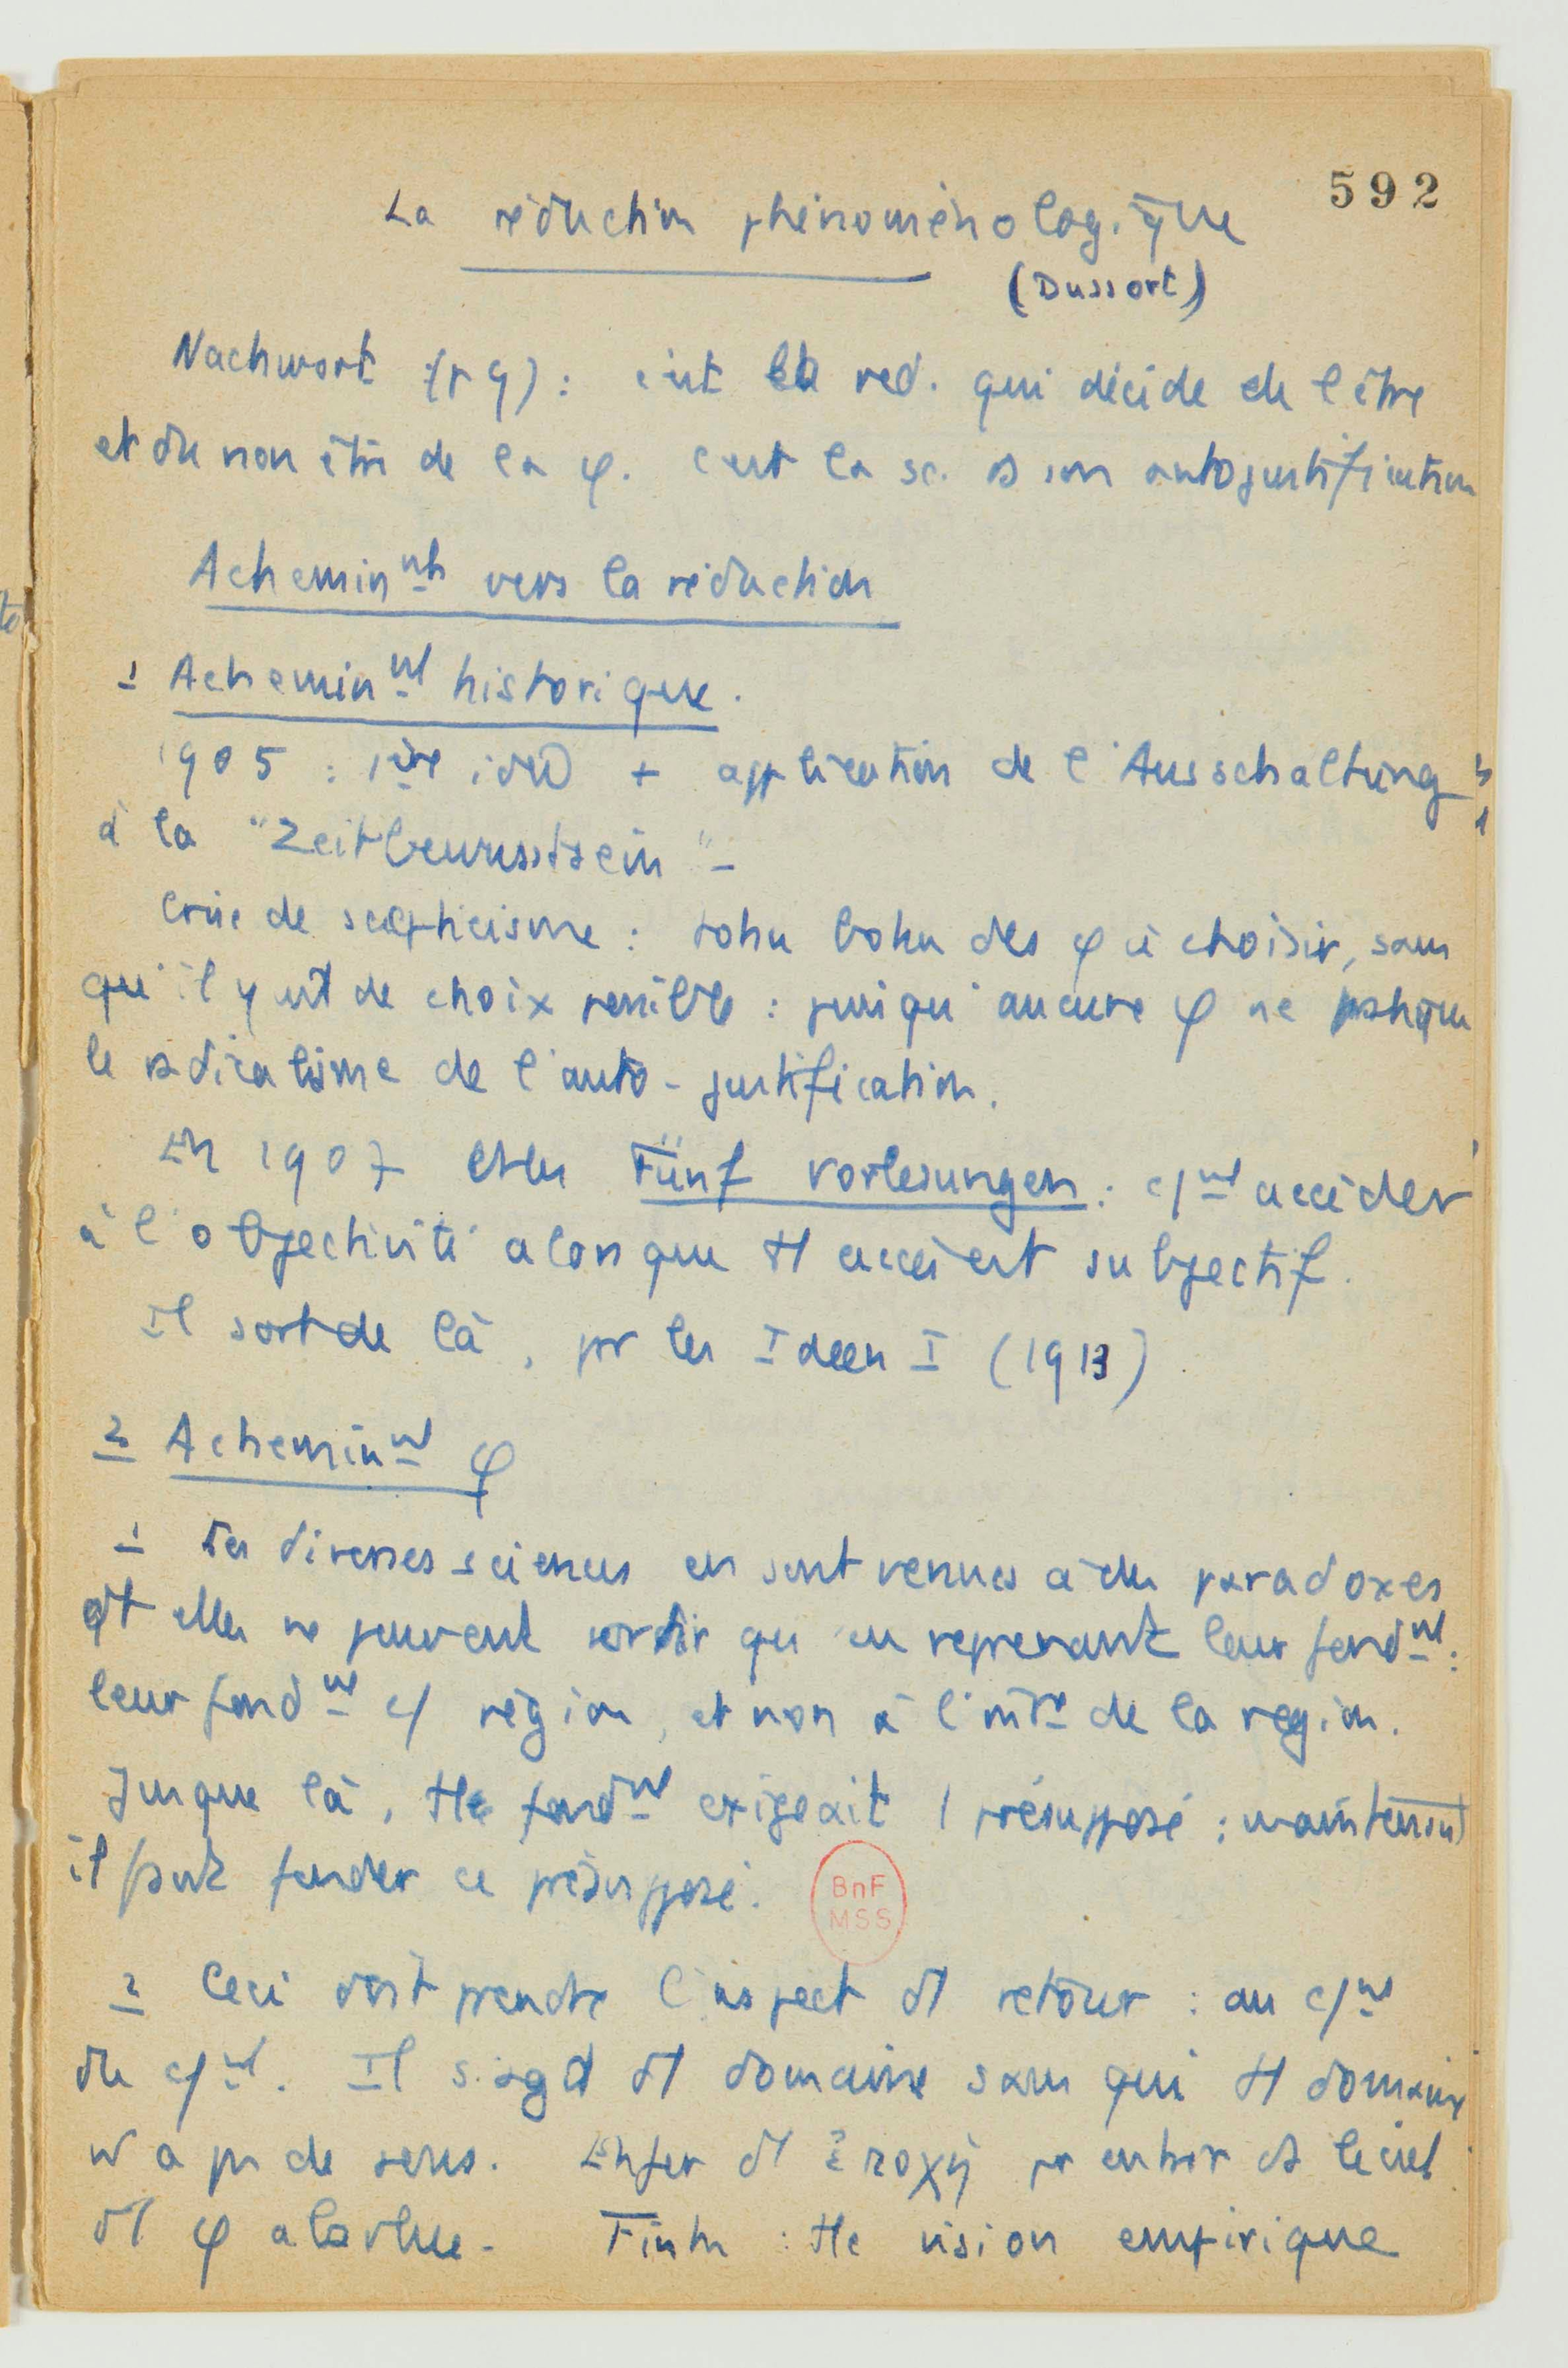 592
La réduction phénoménologique
(Dussort)
Nachwort (p 9) : c'est la red. qui décide de l'être
et du non être de la φ. C'est la sc. ds son autojustification
Acheminnts vers la réduction
1 Acheminnt historique.
1905 : 1ère idée + application de l'Ausschaltung
à la "Zeitbewusstsein" -
Crise de scepticisme : tohu bohu des φ à choisir, sans
qu'il y ait de choix possible : puisqu'aucune φ ne pratique
le radicalisme de l'auto-justification.
En 1907 Fünf Vorlesungen : c/nt accéder
à l'objectivité alors que tt accès est subjectif.
Il sort de là, pr les Ideen I (1913)
2 Acheminnt φ
1 Les diverses sciences en sont venues à des paradoxes
dt elles ne peuvent sortir qu'en reprenant leur fondnt :
leur fondnt c/ région, et non à l'intre de la région.
Jusque là, tte fondnt exigeait 1 présupposé ; maintenant
il faut fonder ce présupposé.
BnF
MSS
2 Ceci doit prendre l'aspect d'1 retour : au c/nt
du c/nt. Il s'agit d'1 domaine sans qui tt domaine
n'a pas de sens. d'1 ἐποχή pr entrer ds le ciel
d'1 φ absolue - Fink : tte vision empirique